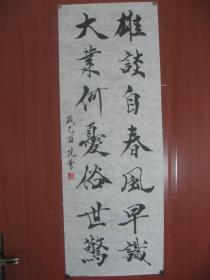 雄談自春風早識
大業何憂俗世驚
歲乙酉